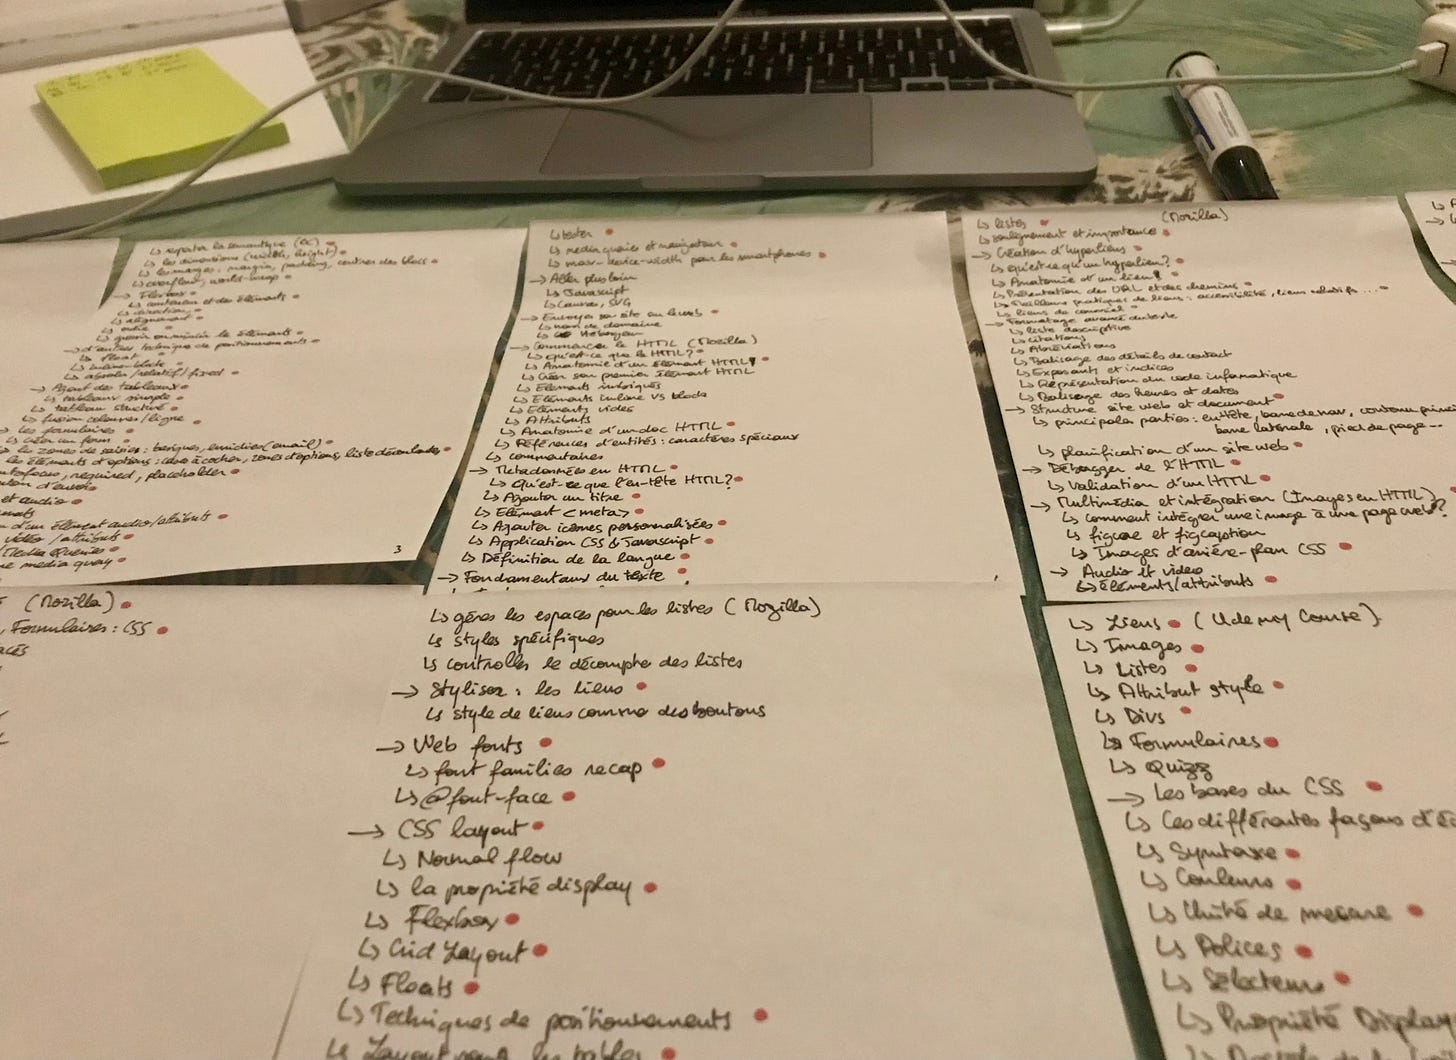 ↳ repérer la sémantique (EC)
↳ les dimensions (width, height)
↳ les marges : margin, padding, centrer des blocs
↳ overflow, world-wrap
→ Flexbox
↳ conteneur et des éléments
↳ direction
↳ alignement
↳ ordre
↳ les éléments
→ d'autres technique de positionnements
↳ float
↳ inline-block
↳ absolu/relatif/fixed
→ Ajout des tableaux
↳ tableaux simple
↳ tableau structuré
↳ fusion colonnes/ligne
→ les formulaires
↳ créer un form
les zones de saisies : basiques, enrichies (email)
les éléments d'options : case à cocher, zones d'options, liste déroulantes
autofocus, required, placeholder
et audio
d'un élément audio/attributs
vidéo /attributs
Media Queries
media query
3
↳ tester
↳ media queries et navigateur
↳ max-device-width pour les smartphones
→ Aller plus loin
↳ Javascript
↳ Canvas, SVG
→ Envoyer son site sur le web
↳ nom de domaine
↳ Héberger
→ Commencer le HTML (Mozilla)
↳ qu'est ce que le HTML?
↳ Anatomie d'un élément HTML
↳ Créer son premier élément HTML
↳ Eléments imbriqués
↳ Eléments inline vs blocks
↳ Eléments vides
↳ Attributs
↳ Anatomie d'un doc HTML
↳ Références d'entités : caractères spéciaux
↳ commentaires
→ Metadonnées en HTML
↳ Qu'est-ce que l'en-tête HTML?
↳ Ajouter un titre
↳ Elément <meta>
↳ Ajouter icônes personnalisées
↳ Application CSS & Javascript
↳ Définition de la langue
→ Fondamentaux du texte
↳ listes (Mozilla)
↳ soulignement et importance
→ Création d'hyperliens
↳ qu'est ce qu'un hyperlien?
↳ Anatomie d'un lien
↳ Présentation des URL et des chemins
↳ Meilleurs pratiques de liens : accessibilité, liens relatifs...
↳ liens de courriel
→ Formatage avancé du texte
↳ liste descriptive
↳ citations
↳ Abréviations
↳ Balisage des détails de contact
↳ Exposants et indices
↳ Représentation du code informatique
↳ Balisage des heures et dates
→ Structure site web et document
↳ principales parties : entête, barre de nav, contenu princi
barre latérale, pied de page...
↳ planification d'un site web
→ Débogger de l'HTML
↳ Validation d'un HTML
→ Multimédia et intégration (Images en HTML)
↳ comment intégrer une image à une page web?
↳ figure et figcaption
↳ Images d'arrière-plan CSS
→ Audio et video
↳ éléments/attributs
(Mozilla)
, Formulaires : CSS
↳ gérer les espaces pour les listes (Mozilla)
↳ styles spécifiques
↳ contrôller le décompte des listes
→ Styliser : les liens
↳ style de liens comme des boutons
→ Web fonts
↳ font families recap
↳ @font-face
→ CSS layout
↳ Normal flow
↳ la propriété display
↳ Flexbox
↳ Grid Layout
↳ Floats
↳ Techniques de positionnements
↳ Liens (Udemy Course)
↳ Images
↳ Listes
↳ Attribut style
↳ Divs
↳ Formulaires
↳ Quizz
→ Les bases du CSS
↳ Les différentes façons d'éc
↳ Syntaxe
↳ Couleurs
↳ Unité de mesure
↳ Polices
↳ Sélecteurs
↳ Propriété Display